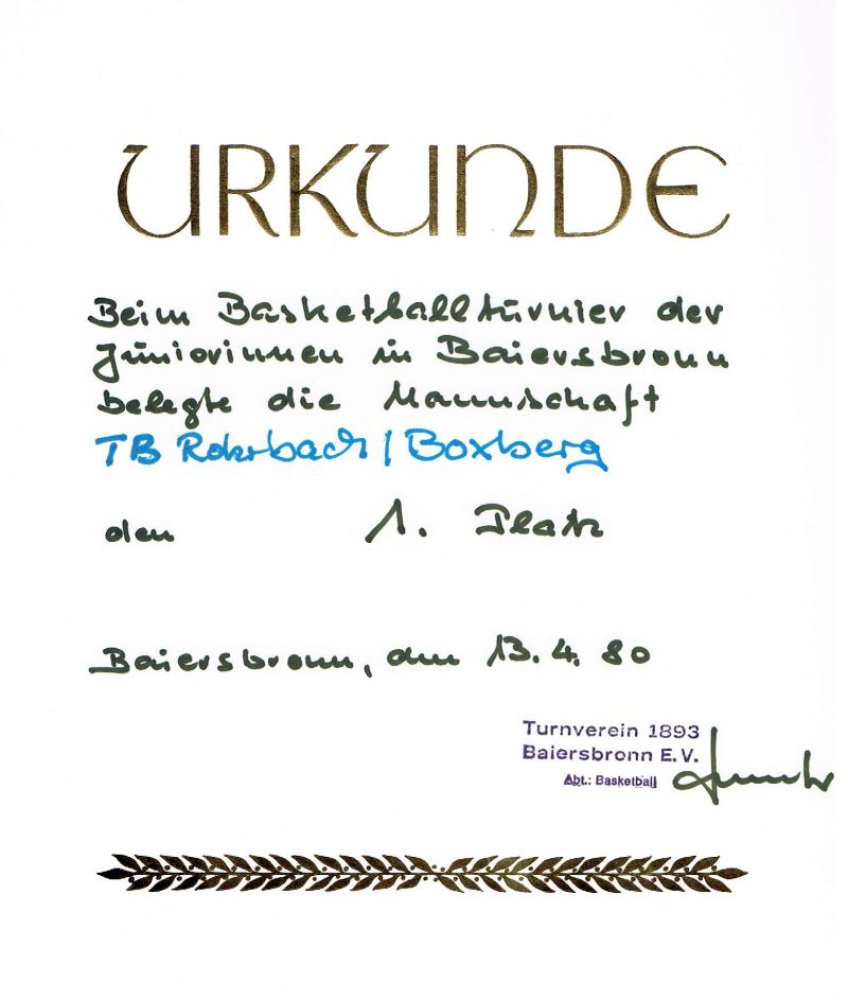 URKUNDE
Beim Basketballturnier der
Juniorinnen in Baiersbronn
belegte die Mannschaft
TB Rohrbach/Boxberg
den 1. Platz
Baiersbronn, den 13.4.80
Turnverein 1893
Baiersbronn E.V.
Abt.: Basketball